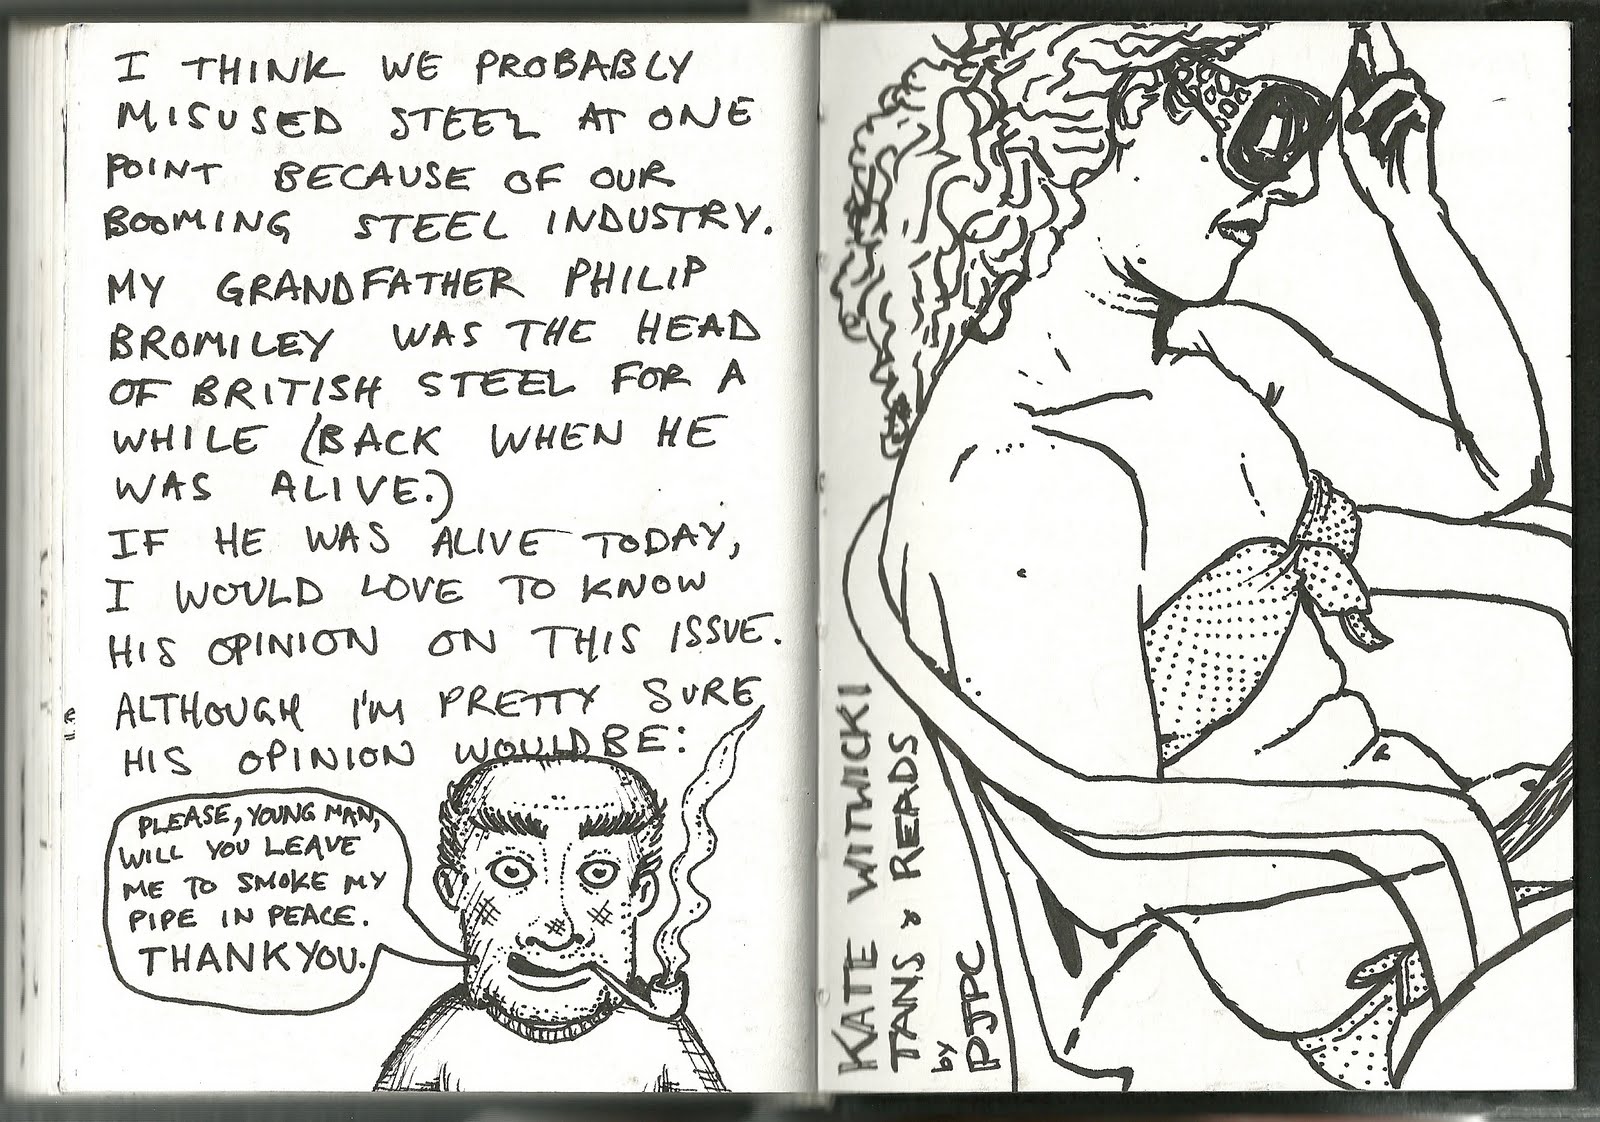 I THINK WE PROBABLY
MISUSED STEEL AT ONE
POINT BECAUSE OF OUR
BOOMING STEEL INDUSTRY.
MY GRANDFATHER PHILIP
BROMILEY WAS THE HEAD
OF BRITISH STEEL FOR A
WHILE (BACK WHEN HE
WAS ALIVE.)
IF HE WAS ALIVE TODAY,
I WOULD LOVE TO KNOW
HIS OPINION ON THIS ISSUE.
ALTHOUGH I'M PRETTY SURE
HIS OPINION WOULD BE:
PLEASE, YOUNG MAN,
WILL YOU LEAVE
ME TO SMOKE MY
PIPE IN PEACE.
THANK YOU.
KATE WITWICKI
TANS & READS
by
PJPC